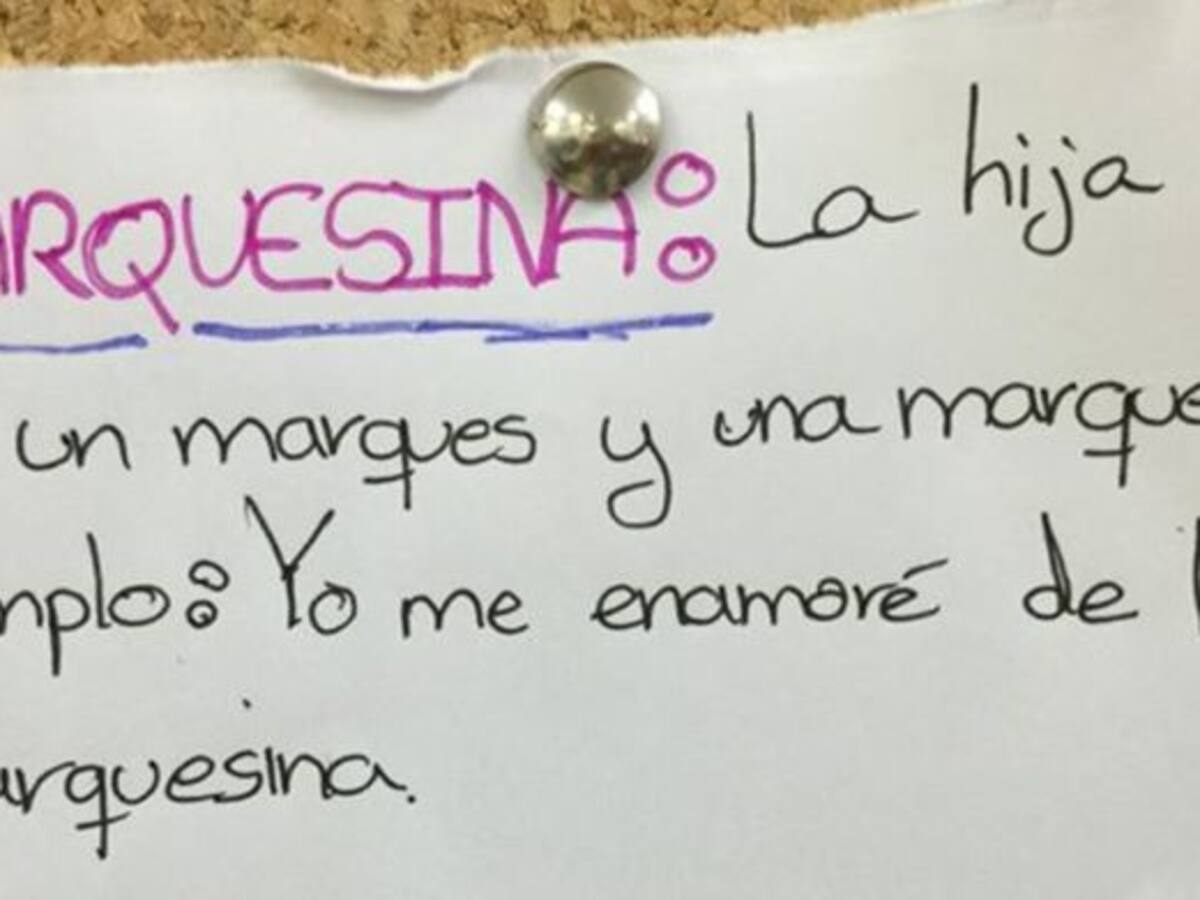 ARQUESINA: La hija
un marques y una marque
mplo: Yo me enamoré de
arquesina.